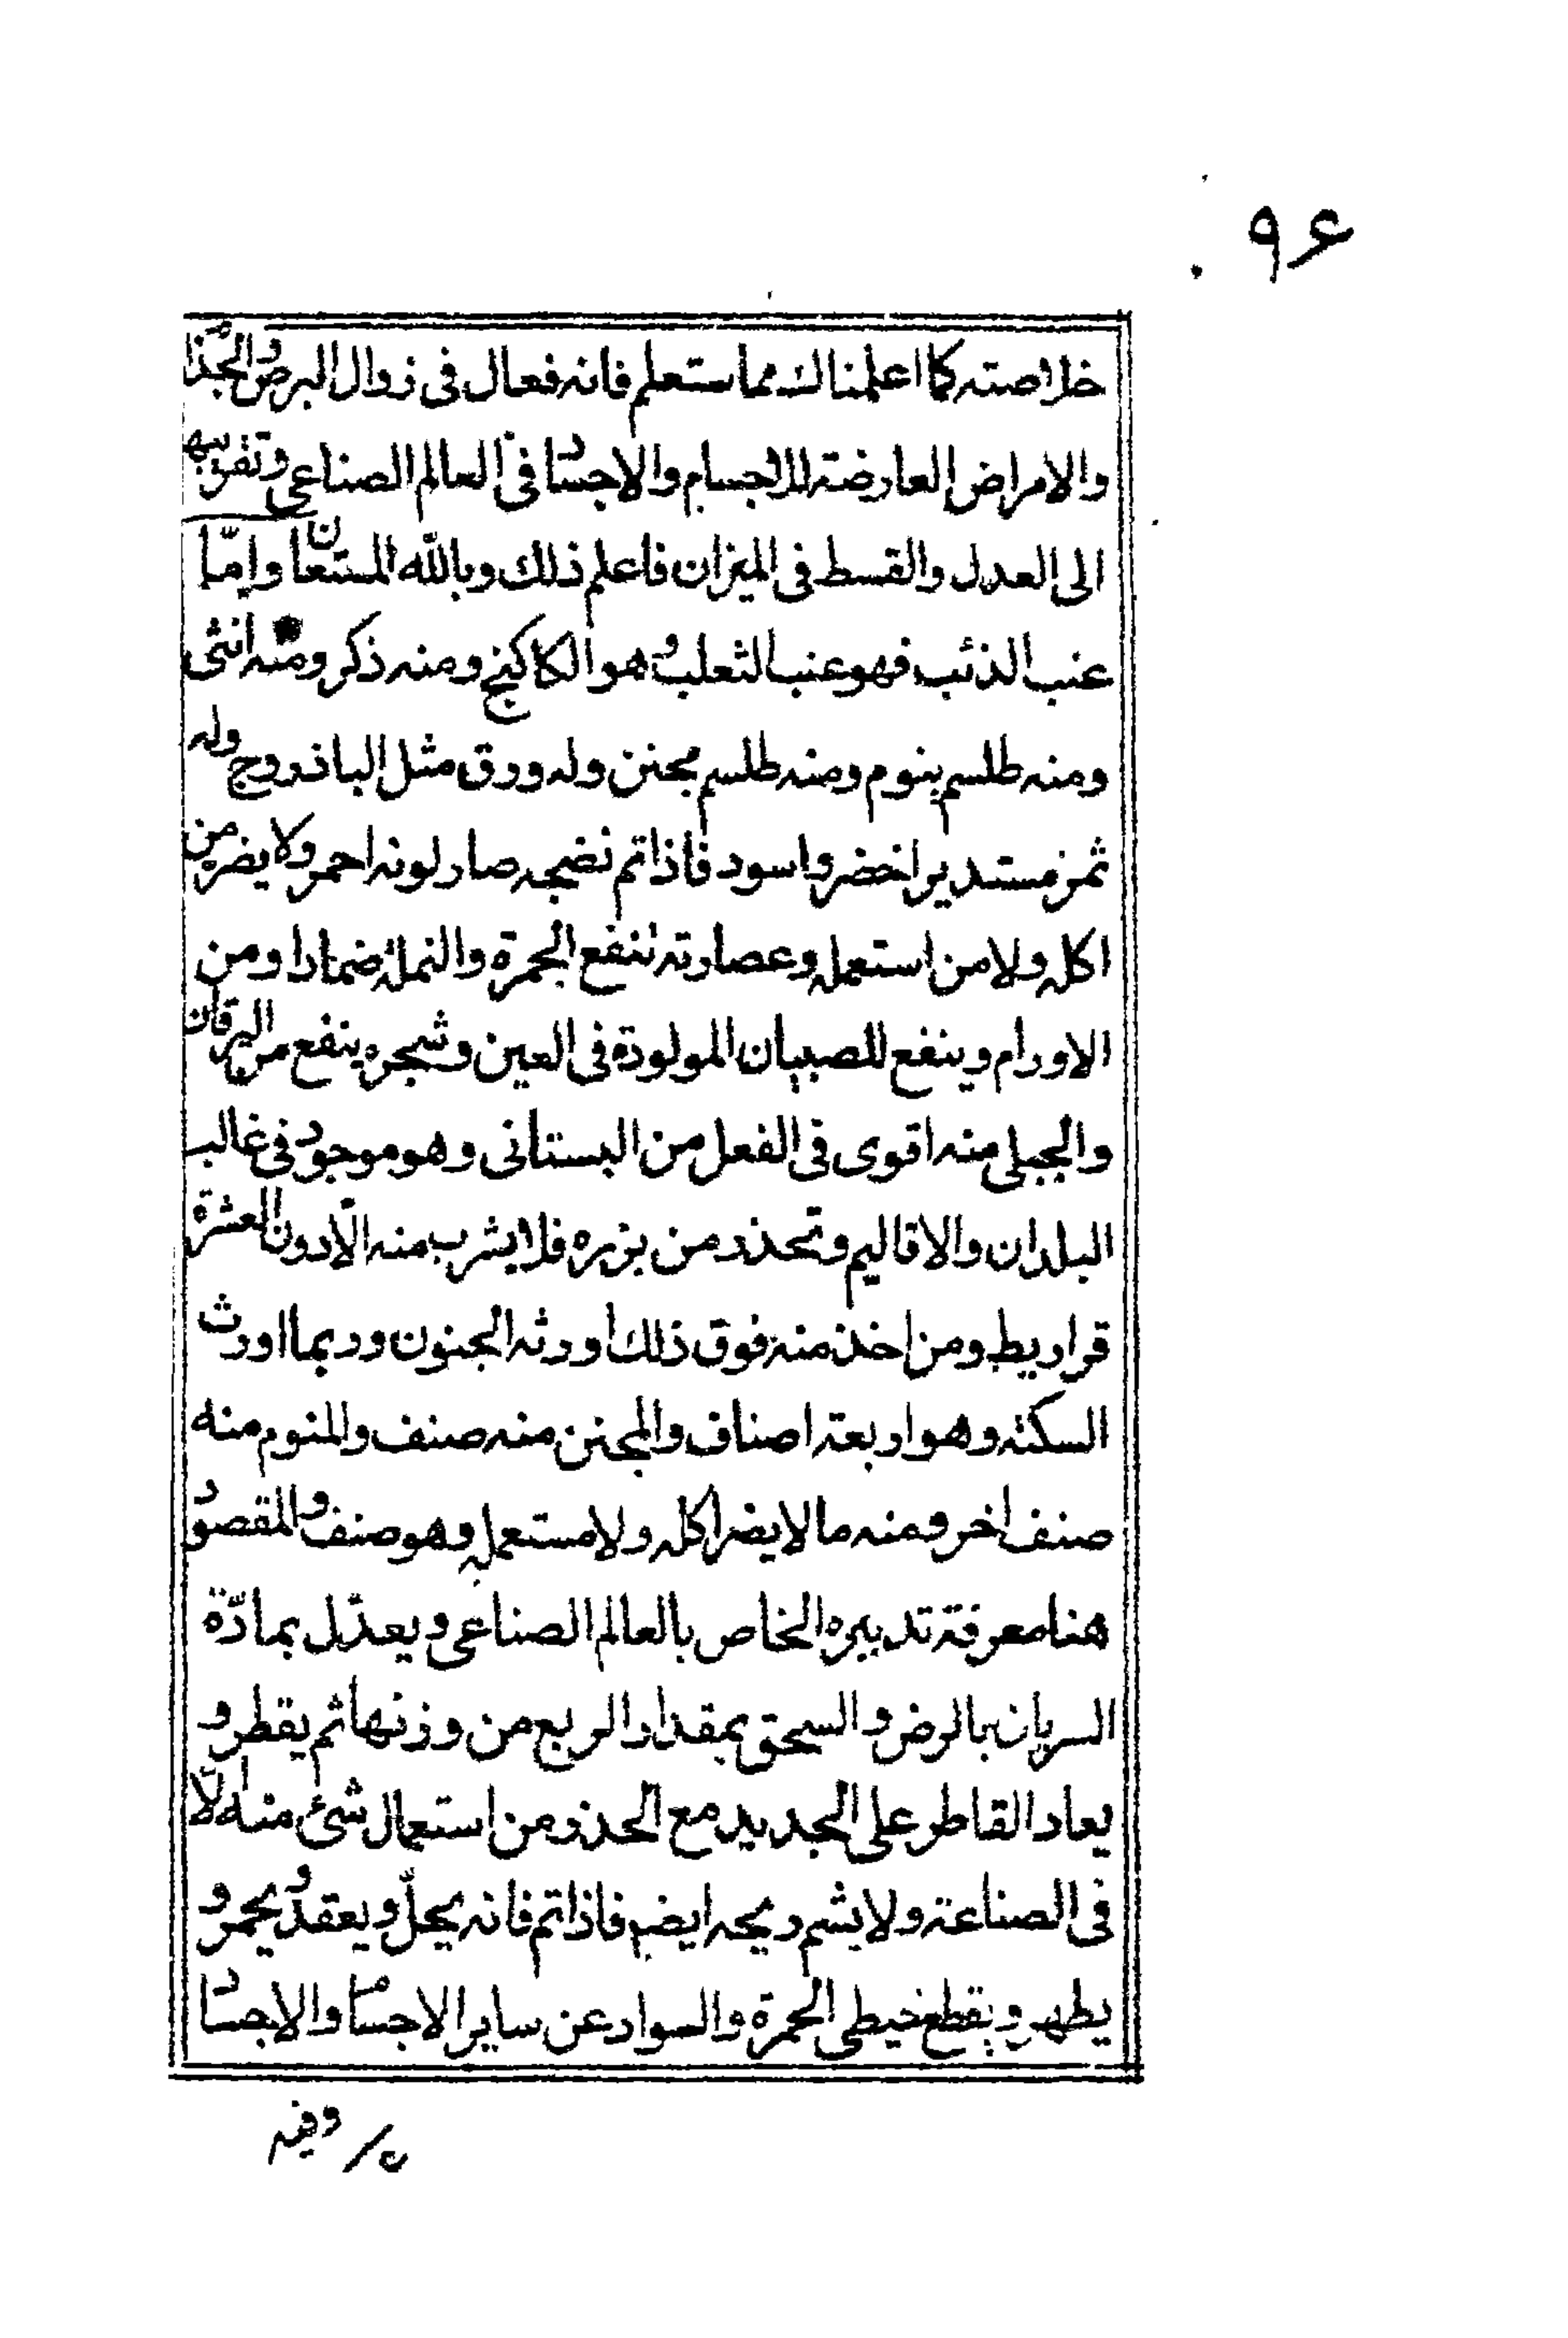 ۹۶
خلاصته كما اعلمناك مما ستعلم فانه فعال فى زوال البرص والجذام
والامراض العارضة للاجسام والاجساد فى العالم الصناعى وتقربها
الى العدل والقسط فى الميزان فاعلم ذلك وبالله المستعان وامّا
عنب الذئب فهو عنب الثعلب وهو الكاكنج ومنه ذكر ومنه انثى
ومنه طلسم ينوم ومنه طلسم يجنن وله ورق مثل الباذروج وله
ثمر مستدير اخضر واسود فاذا تم نضجه صار لونه احمر ولا يضر من
اكله ولا من استعمله وعصارته تنفع الجمرة والنملة ضمادا ومن
الاورام وينفع للصبيان المولودة فى العين وشجره ينفع من اليرقان
والجبلى منه اقوى فى الفعل من البستانى وهو موجود فى غالب
البلدان والاقاليم وتحذر من بزره فلا يشرب منه الّا دون العشرة
قراريط ومن اخذ منه فوق ذلك اورثه الجنون وربما اورث
السكته وهو اربعة اصناف والمجنن منه صنف والمنوم منه
صنف اخر ومنه ما لا يضر اكله ولا مستعمله وهو صنف والمقصود
هنا معرفة تدبيره الخاص بالعالم الصناعى ويعدّل بمادّة
السريان بالرض والسحق بمقدار الربع من وزنها ثم يقطر و
يعاد القاطر على الجديد مع الحذر من استعمال شئ منه الّا
فى الصناعة ولا يشم ريحه ايضا فاذا تم فانه يحلّ ويعقد ويحمر و
يطهر ويقطع خيطى الحمرة والسواد عن ساير الاجسام والاجساد
وفيه